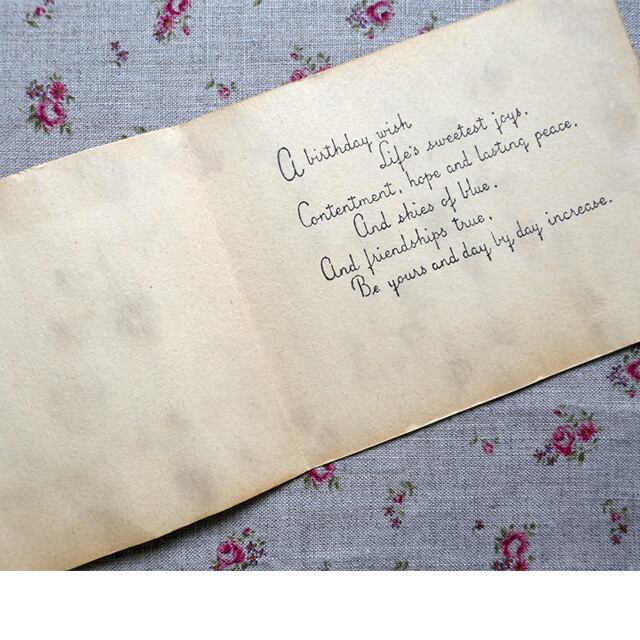 A birthday wish
Life's sweetest joys.
Contentment, hope and lasting peace.
And skies of blue.
And friendships true,
Be yours and day by day increase.